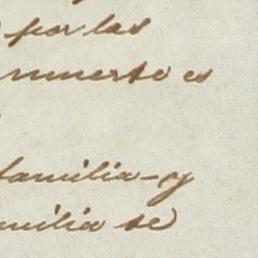 por las
muerto es
familia - y
amilia se